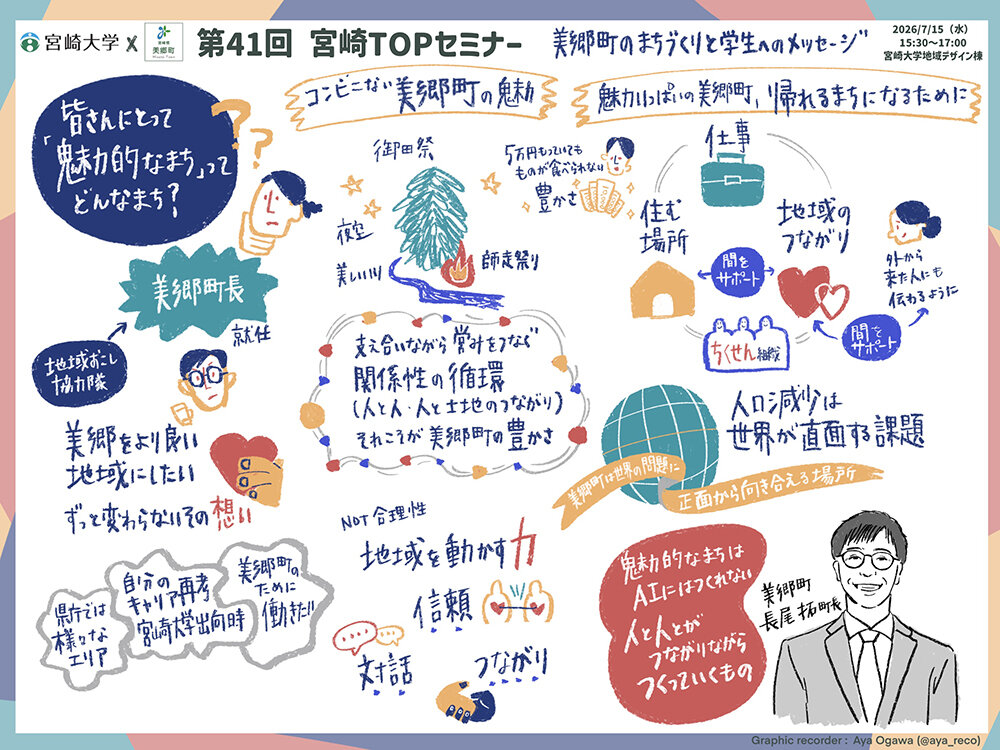 宮崎大学 X 美郷町
第41回 宮崎TOPセミナー
美郷町のまちづくりと学生へのメッセージ
2026/7/15（水）
15:30〜17:00
宮崎大学地域デザイン棟
皆さんにとって
「魅力的なまち」って
どんなまち？
??
美郷町長
就任
地域おこし
協力隊
美郷をより良い
地域にしたい
ずっと変わらないその想い
県庁では
様々な
エリア
自分の
キャリア再考
宮崎大学出向時
美郷町の
ために
働きたい
コンビニない美郷町の魅力
御田祭
5万円もっていても
ものが食べられない
豊かさ
夜空
美しい川
師走祭り
支え合いながら営みをつなぐ
関係性の循環
（人と人・人と土地のつながり）
それこそが美郷町の豊かさ
NOT 合理性
地域を動かす力
信頼
対話
つながり
魅力いっぱいの美郷町、帰れるまちになるために
仕事
住む
場所
地域の
つながり
間を
サポート
外から
来た人にも
伝わるように
間を
サポート
ちくせん組織
人口減少は
世界が直面する課題
美郷町は世界の問題に
正面から向き合える場所
魅力的なまちは
AIにはつくれない
人と人とが
つながりながら
つくっていくもの
美郷町
長尾拓町長
Graphic recorder : Aya Ogawa (@aya_reco)